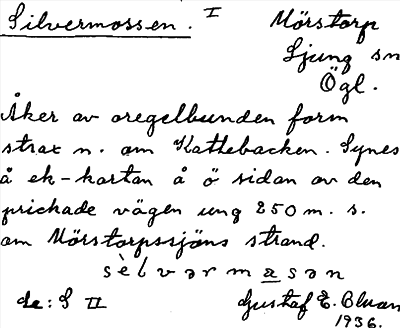 Silvermossen. I
Mörstorp
Ljung sn
Ögl.
Åker av oregelbunden form
strax n. om Kattebacken. Synes
å ek-kartan å ö sidan av den
prickade vägen ung 250 m. s.
om Mörstorpssjöns strand.
sèlvərmasən
de: S II
Gustaf E. Bluan
1936.